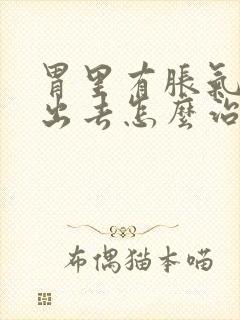 胃里有脹氣
出去怎麼治
布偶猫本喵